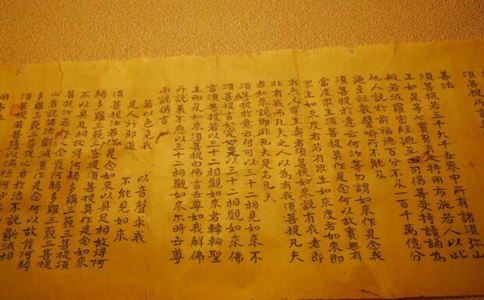 須菩提所言
善法
須菩提若三千大千世界中所有諸須弥山
王如是等七寶聚有人持用布施若人以此
般若波羅蜜經乃至四句偈等受持讀誦為
他人說於前福德百分不及一百千萬億分
乃至筭數譬喻所不能及
須菩提於意云何汝等勿謂如來作是念我
當度眾生須菩提莫作是念何以故實無有
眾生如來度者若有眾生如來度者如來即
有我人眾生壽者須菩提如來說有我者即
非有我而凡夫之人以為有我須菩提凡夫
者如來說即非凡夫是名凡夫
須菩提於意云何可以三十二相見如來不
須菩提言如是如是以三十二相觀如來佛
言須菩提若以三十二相觀如來者轉輪聖
王即是如來須菩提白佛言世尊如我解佛
所說義不應以三十二相觀如來尔時世尊
而說偈言
若以色見我 以音聲求我
是人行邪道 不能見如來
須菩提汝若作是念如來不以具足相故得阿
耨多羅三藐三菩提須菩提莫作是念如來
不以具足相故得阿耨多羅三藐三菩提須
菩提汝若作是念發阿耨多羅三藐三菩提
心者說諸法斷滅莫作是念何以故發阿耨
多羅三藐三菩提心者於法不說斷滅相